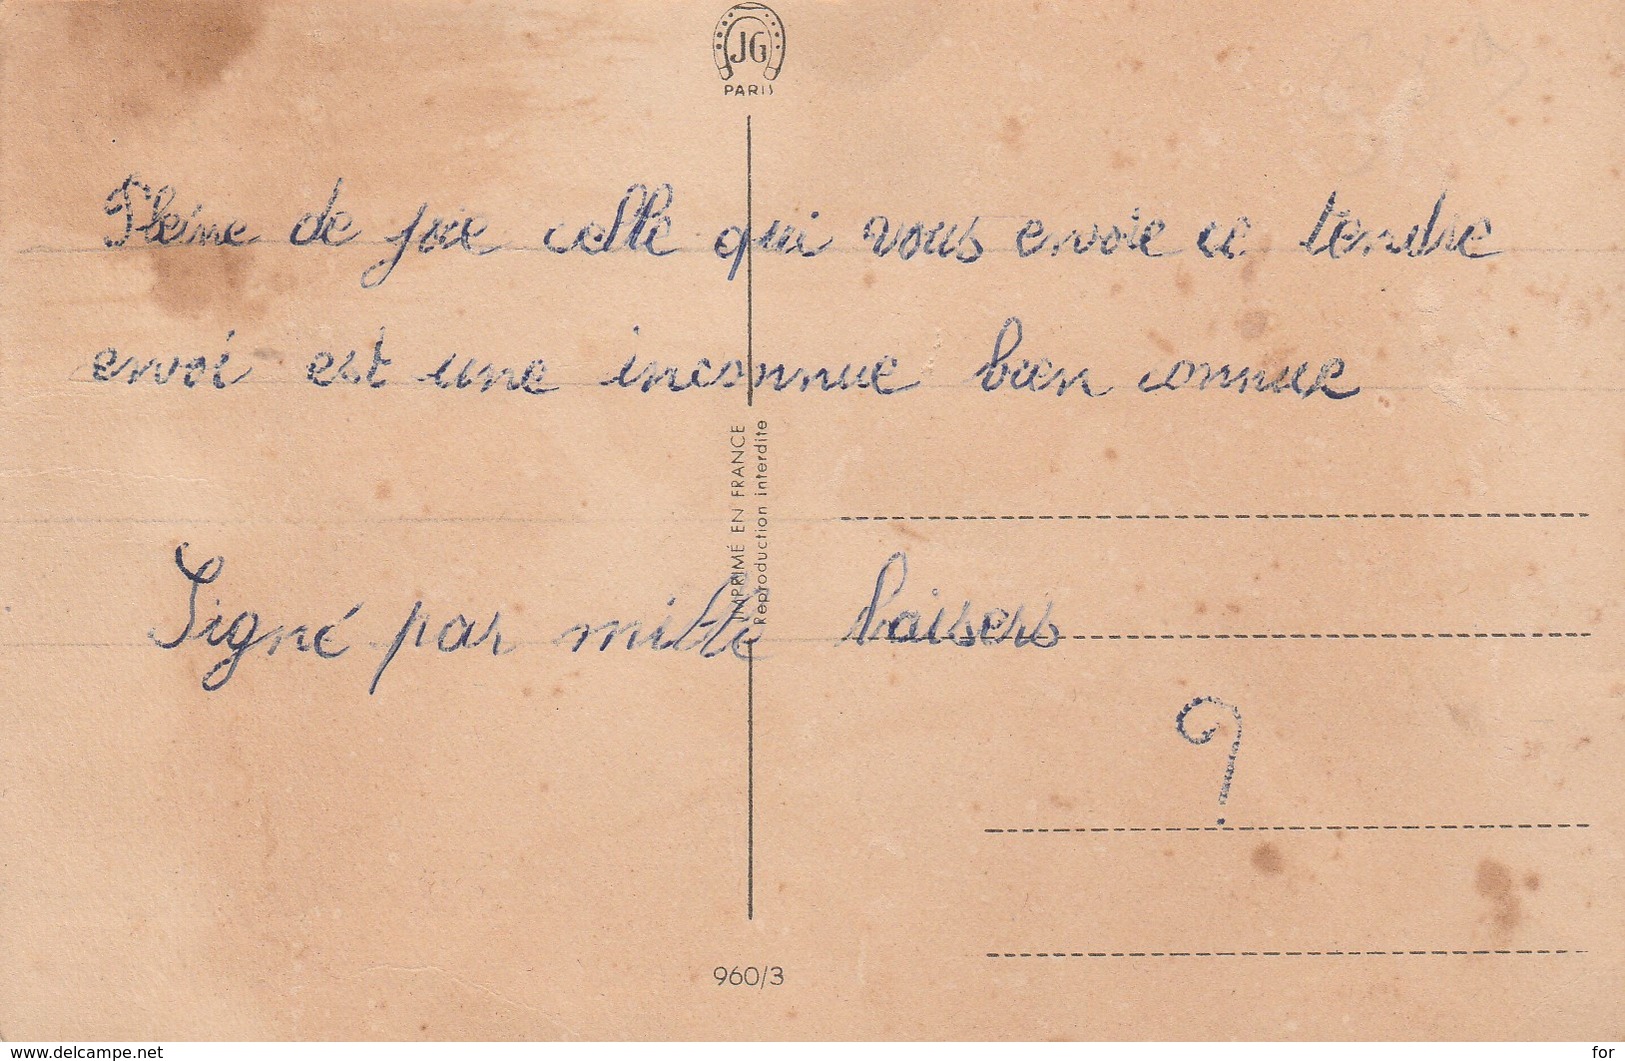 JG
PARIS
Pleine de joie celle qui vous envoie ce tendre
envoi est une inconnue bien connue
IMPRIMÉ EN FRANCE
Reproduction interdite
Signé par mille baisers
?
960/3
www.delcampe.net
for